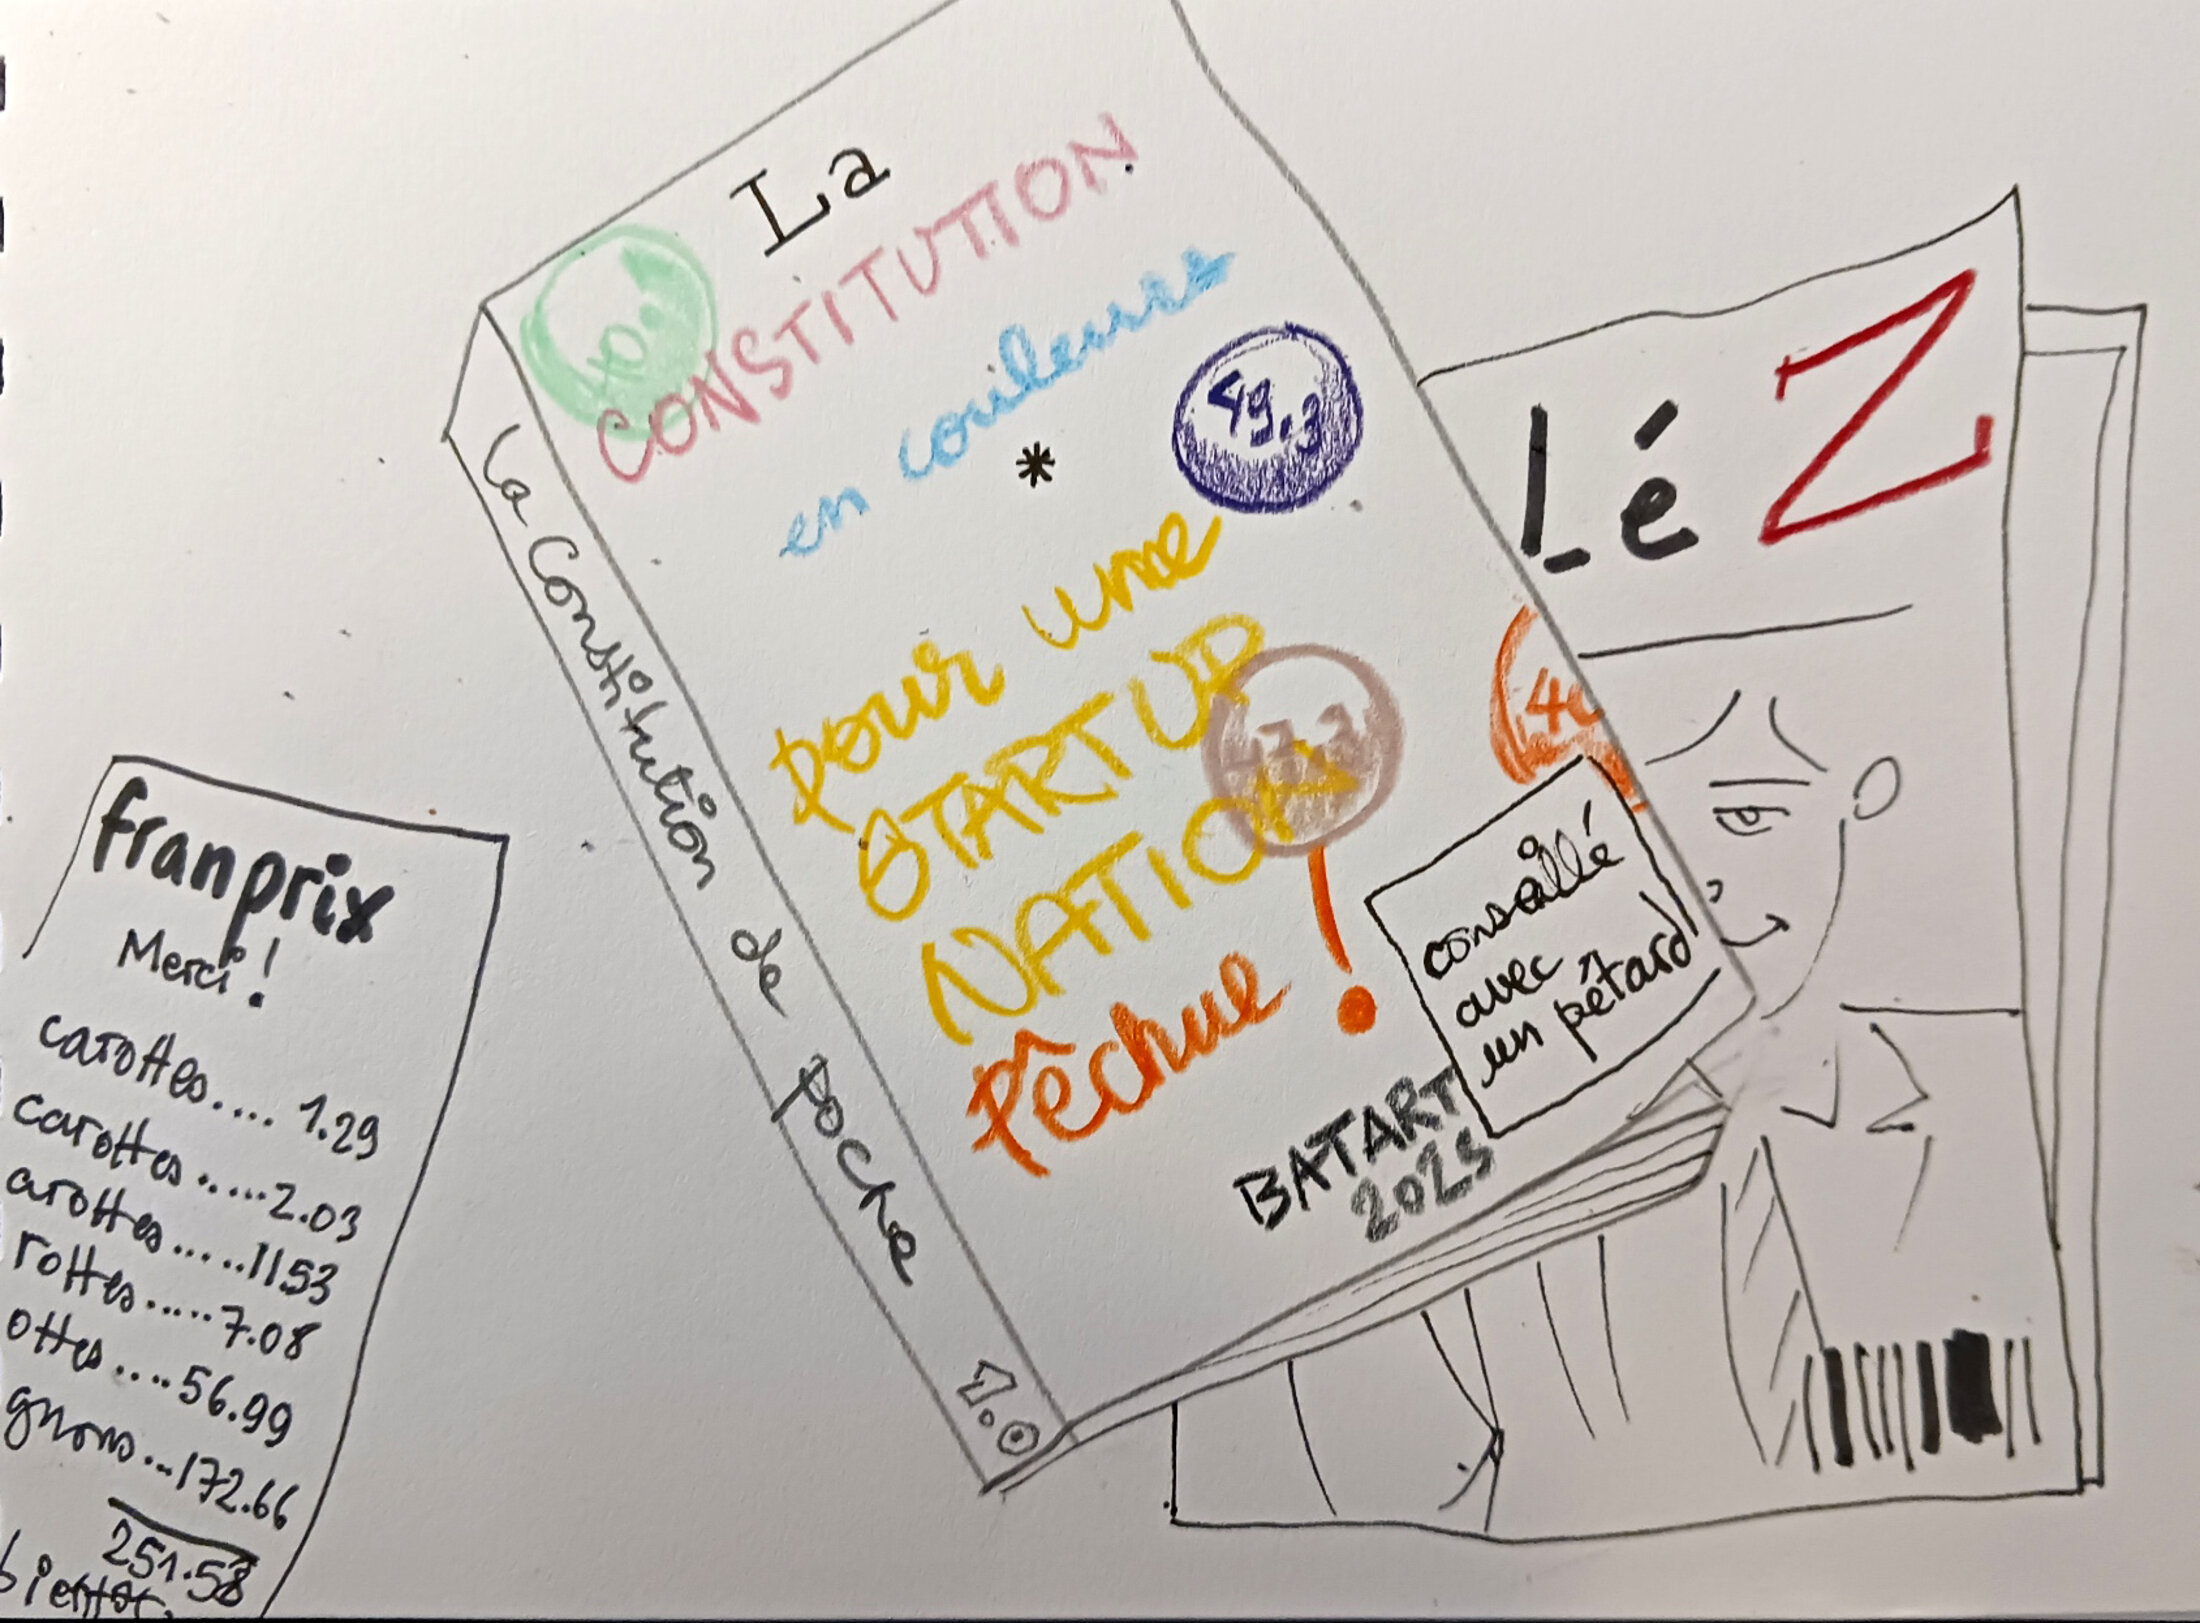 franprix
Merci !
carottes.... 1.29
carottes.....2.03
arottes.....11.53
rottes.....7.08
ottes....56.99
gnons...172.66
251.58
bientôt.
La Constitution de poche
1.0
La
CONSTITUTION
en couleurs
*
49.3
pour une
STARTUP
NATION
47.3
Pêchue !
conseillé
avec
un pétard
BATART
2025
Lé Z